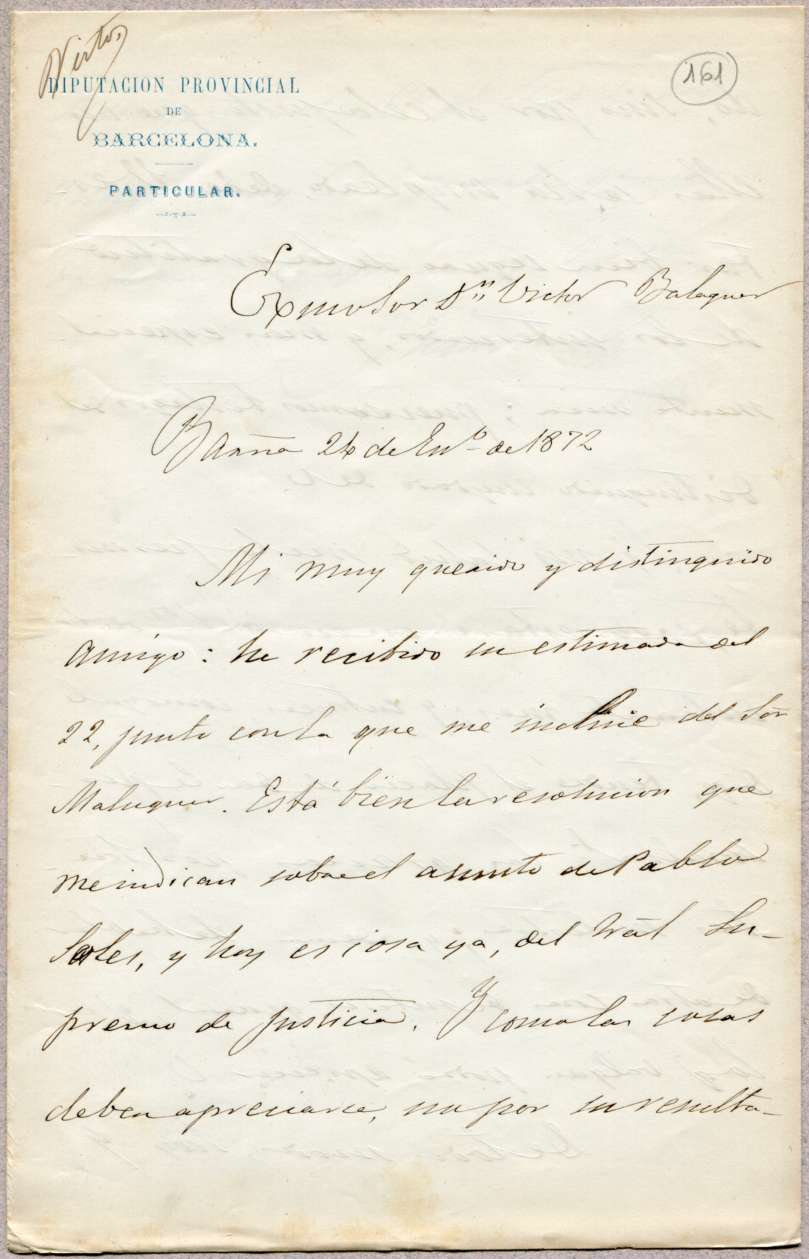 Virto,
161
DIPUTACION PROVINCIAL
DE
BARCELONA.
PARTICULAR.
Exmo Sor Dn Victor Balaguer
Barña 24 de Eno de 1872
Mi muy querido y distinguido
amigo: he recibido su estimada del
22, junto con la que me incluie del Sor
Maluquer. Está bien la resolucion que
me indican sobre el asunto de Pablo
Soler, y hoy es cosa ya, del Tral Su-
premo de Justicia. Y como las cosas
deben apreciarse, no por su resulta-